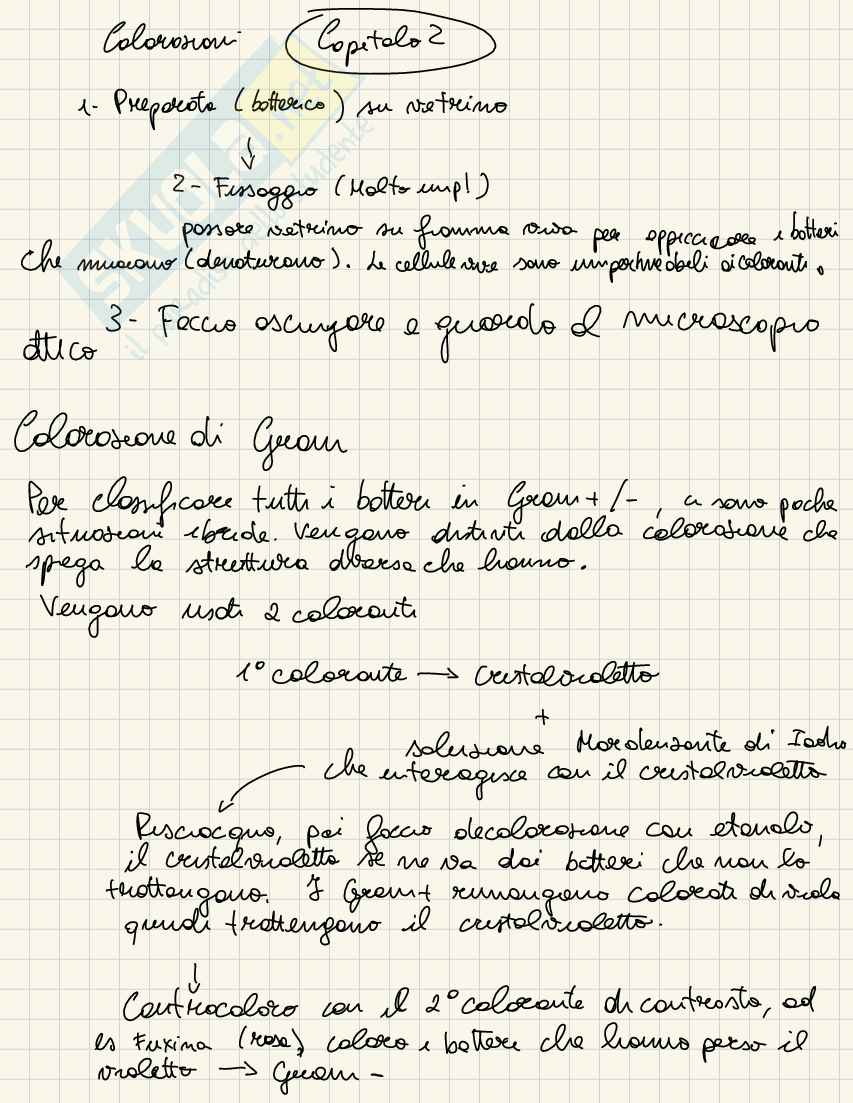 Colorazioni Capitolo 2
1- Preparato (batterico) su vetrino
↓
2- Fissaggio (Molto imp!)
passare vetrino su fiamma viva per appiccicare i batteri
che muoiono (denaturano). Le cellule vive sono impermeabili ai coloranti.
3- Faccio asciugare e guardo al microscopio
ottico
Colorazione di Gram
Per classificare tutti i batteri in Gram+/-, ci sono poche
situazioni ibride. Vengono distinti dalla colorazione che
spega la struttura diversa che hanno.
Vengono usati 2 coloranti
1° colorante → Cristalvioletto
+
soluzione Mordenzante di Iodio
che interagisce con il cristalvioletto
Risciacquo, poi faccio decolorazione con etanolo,
il cristalvioletto se ne va dai batteri che non lo
trattengono. I Gram+ rimangono colorati di viola
quindi trattengono il cristalvioletto.
↓
Controcoloro con il 2° colorante di contrasto, ad
es Fuxina (rosa), coloro i batteri che hanno perso il
violetto → Gram -
SKUOLA.net
il paradiso dello studente